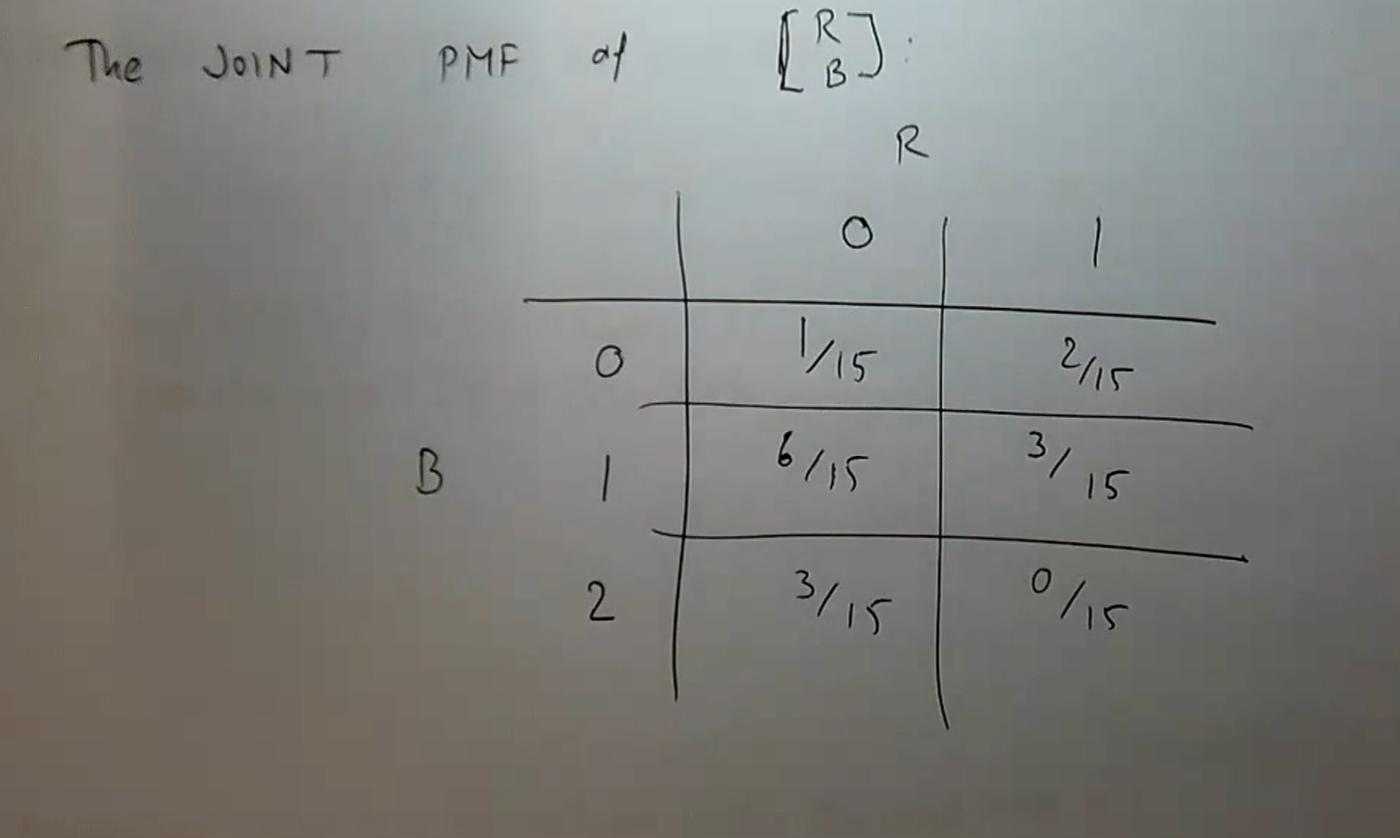 The JOINT PMF of [R B]:
R
0 1
0 1/15 2/15
B 1 6/15 3/15
2 3/15 0/15